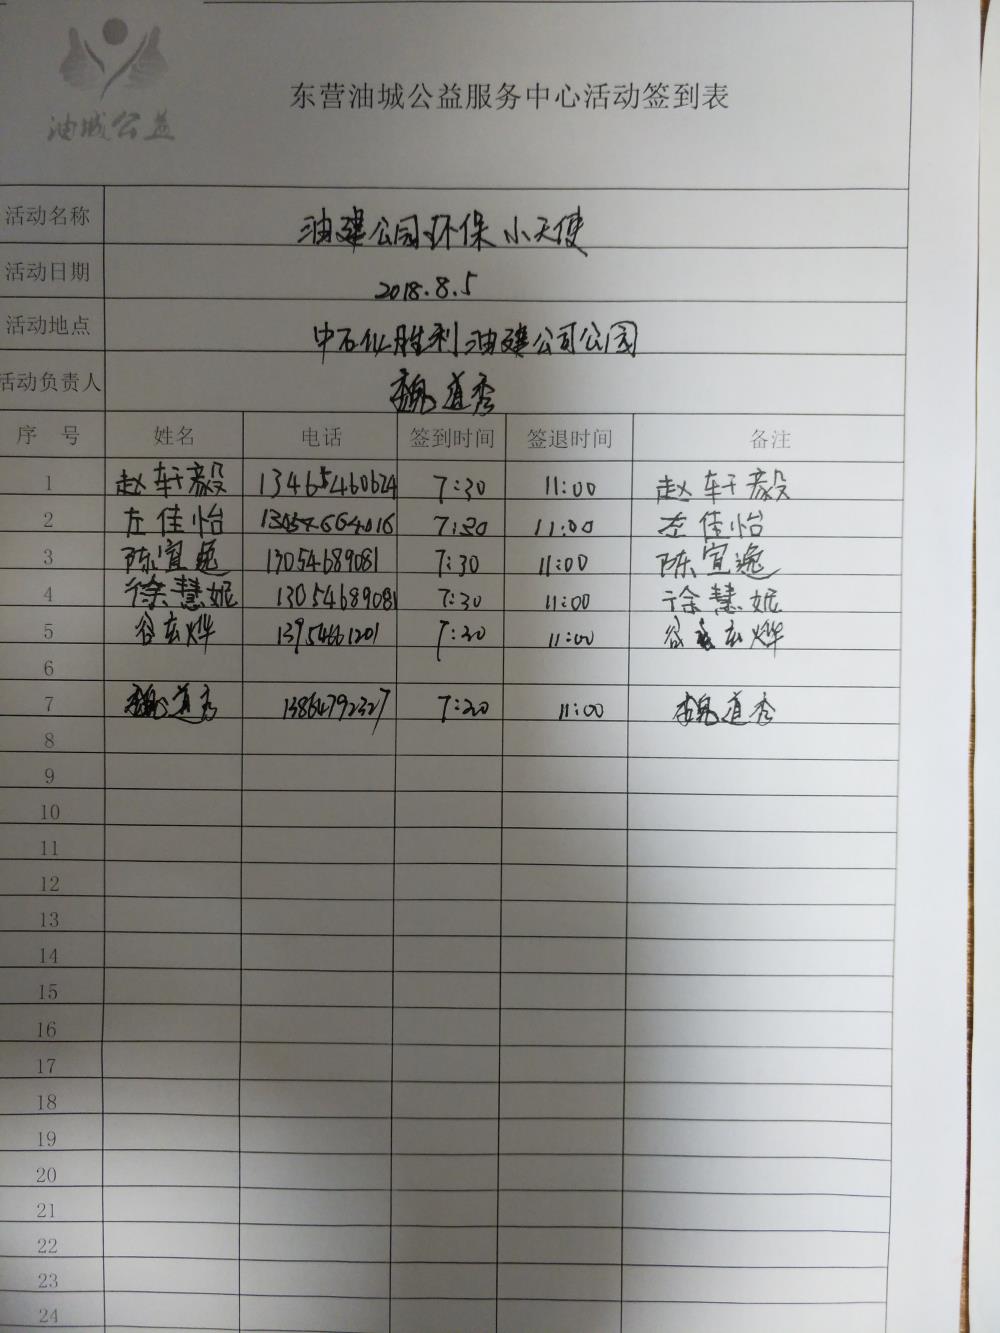 油城公益
东营油城公益服务中心活动签到表
活动名称 油建公司环保小天使
活动日期 2018.8.5
活动地点 中石化胜利油建公司公园
活动负责人 魏道秀
序 号 姓名 电话 签到时间 签退时间 备注
1 赵轩毅 13465460624 7:30 11:00 赵轩毅
2 左佳怡 13054664016 7:30 11:00 左佳怡
3 陈宜逸 13054689081 7:30 11:00 陈宜逸
4 徐慧妮 13054689081 7:30 11:00 徐慧妮
5 谷玄烨 13954661201 7:30 11:00 谷玄烨
6
7 魏道秀 13864792327 7:30 11:00 魏道秀
8
9
10
11
12
13
14
15
16
17
18
19
20
21
22
23
24